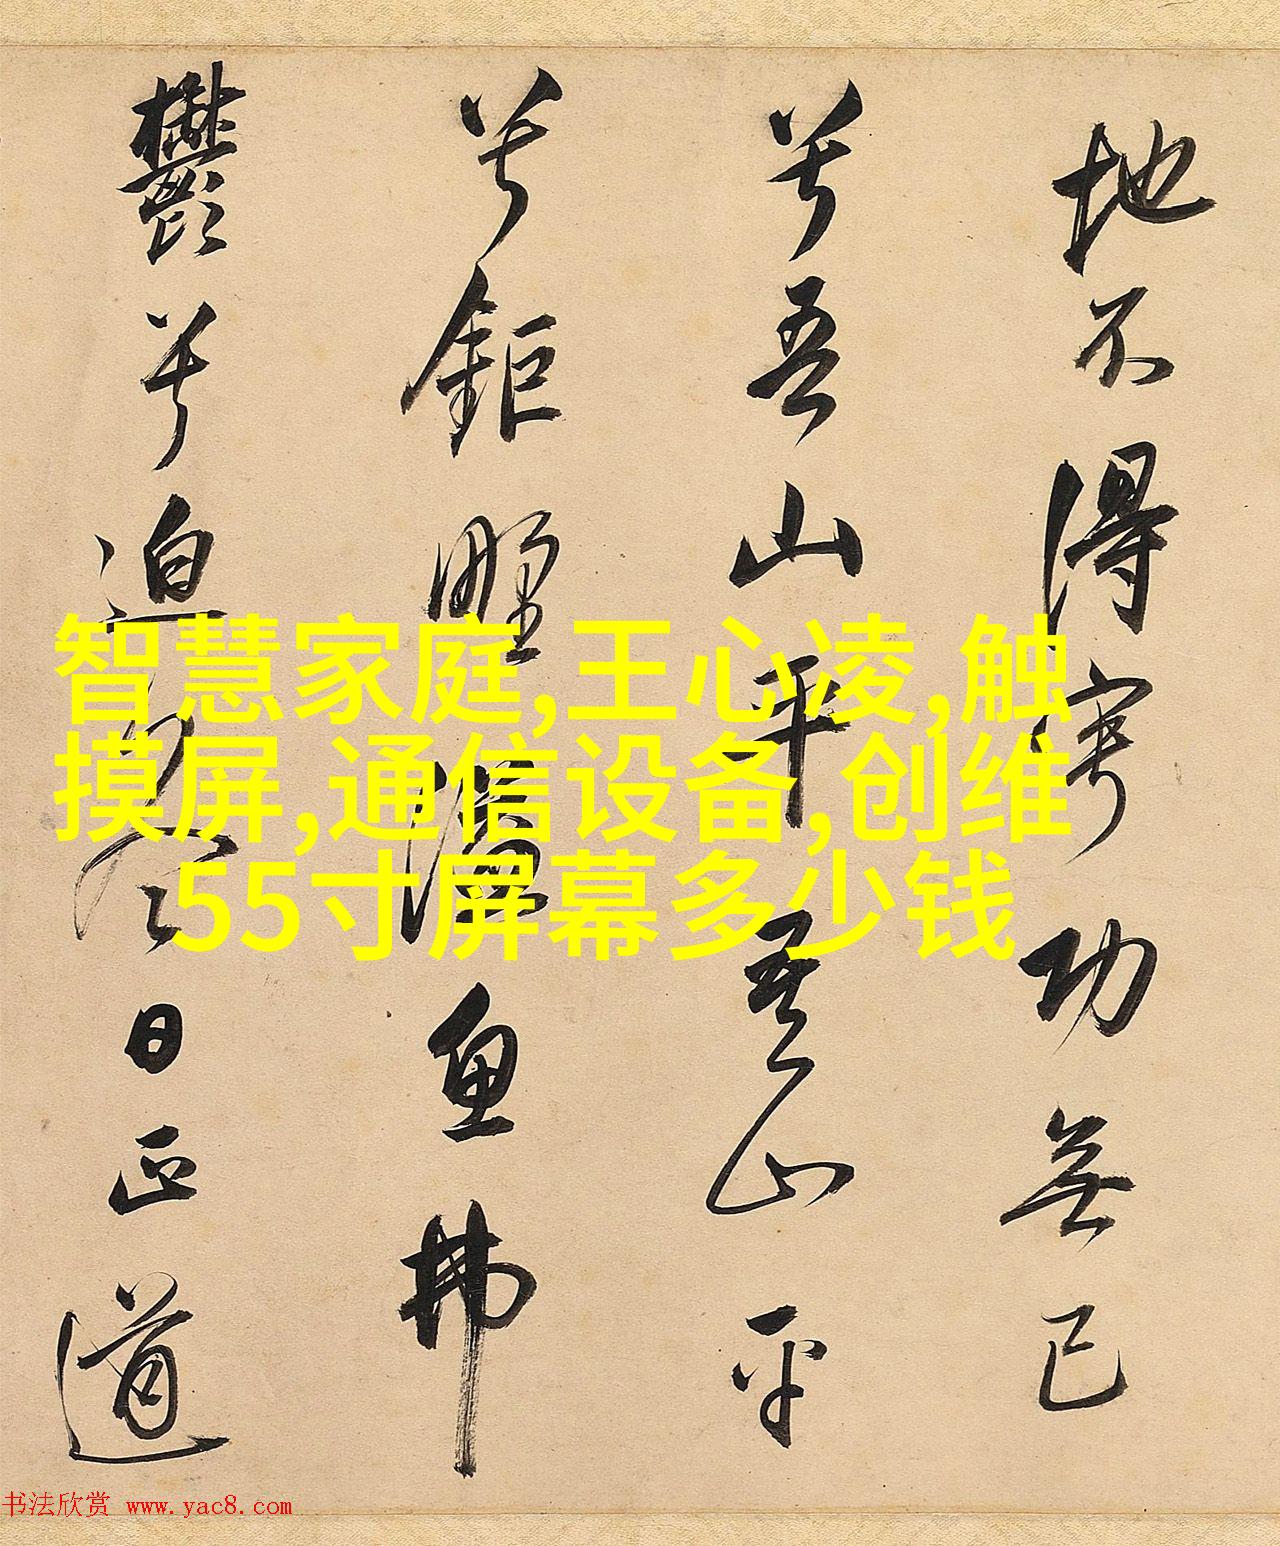 地不得寧功無已
兮吾山平吾山平
兮鉅野溢魚拂
鬱兮迫冬日正道
智慧家庭,王心凌,触
摸屏,通信设备,创维
55寸屏幕多少钱
书法欣赏 www.yac8.com